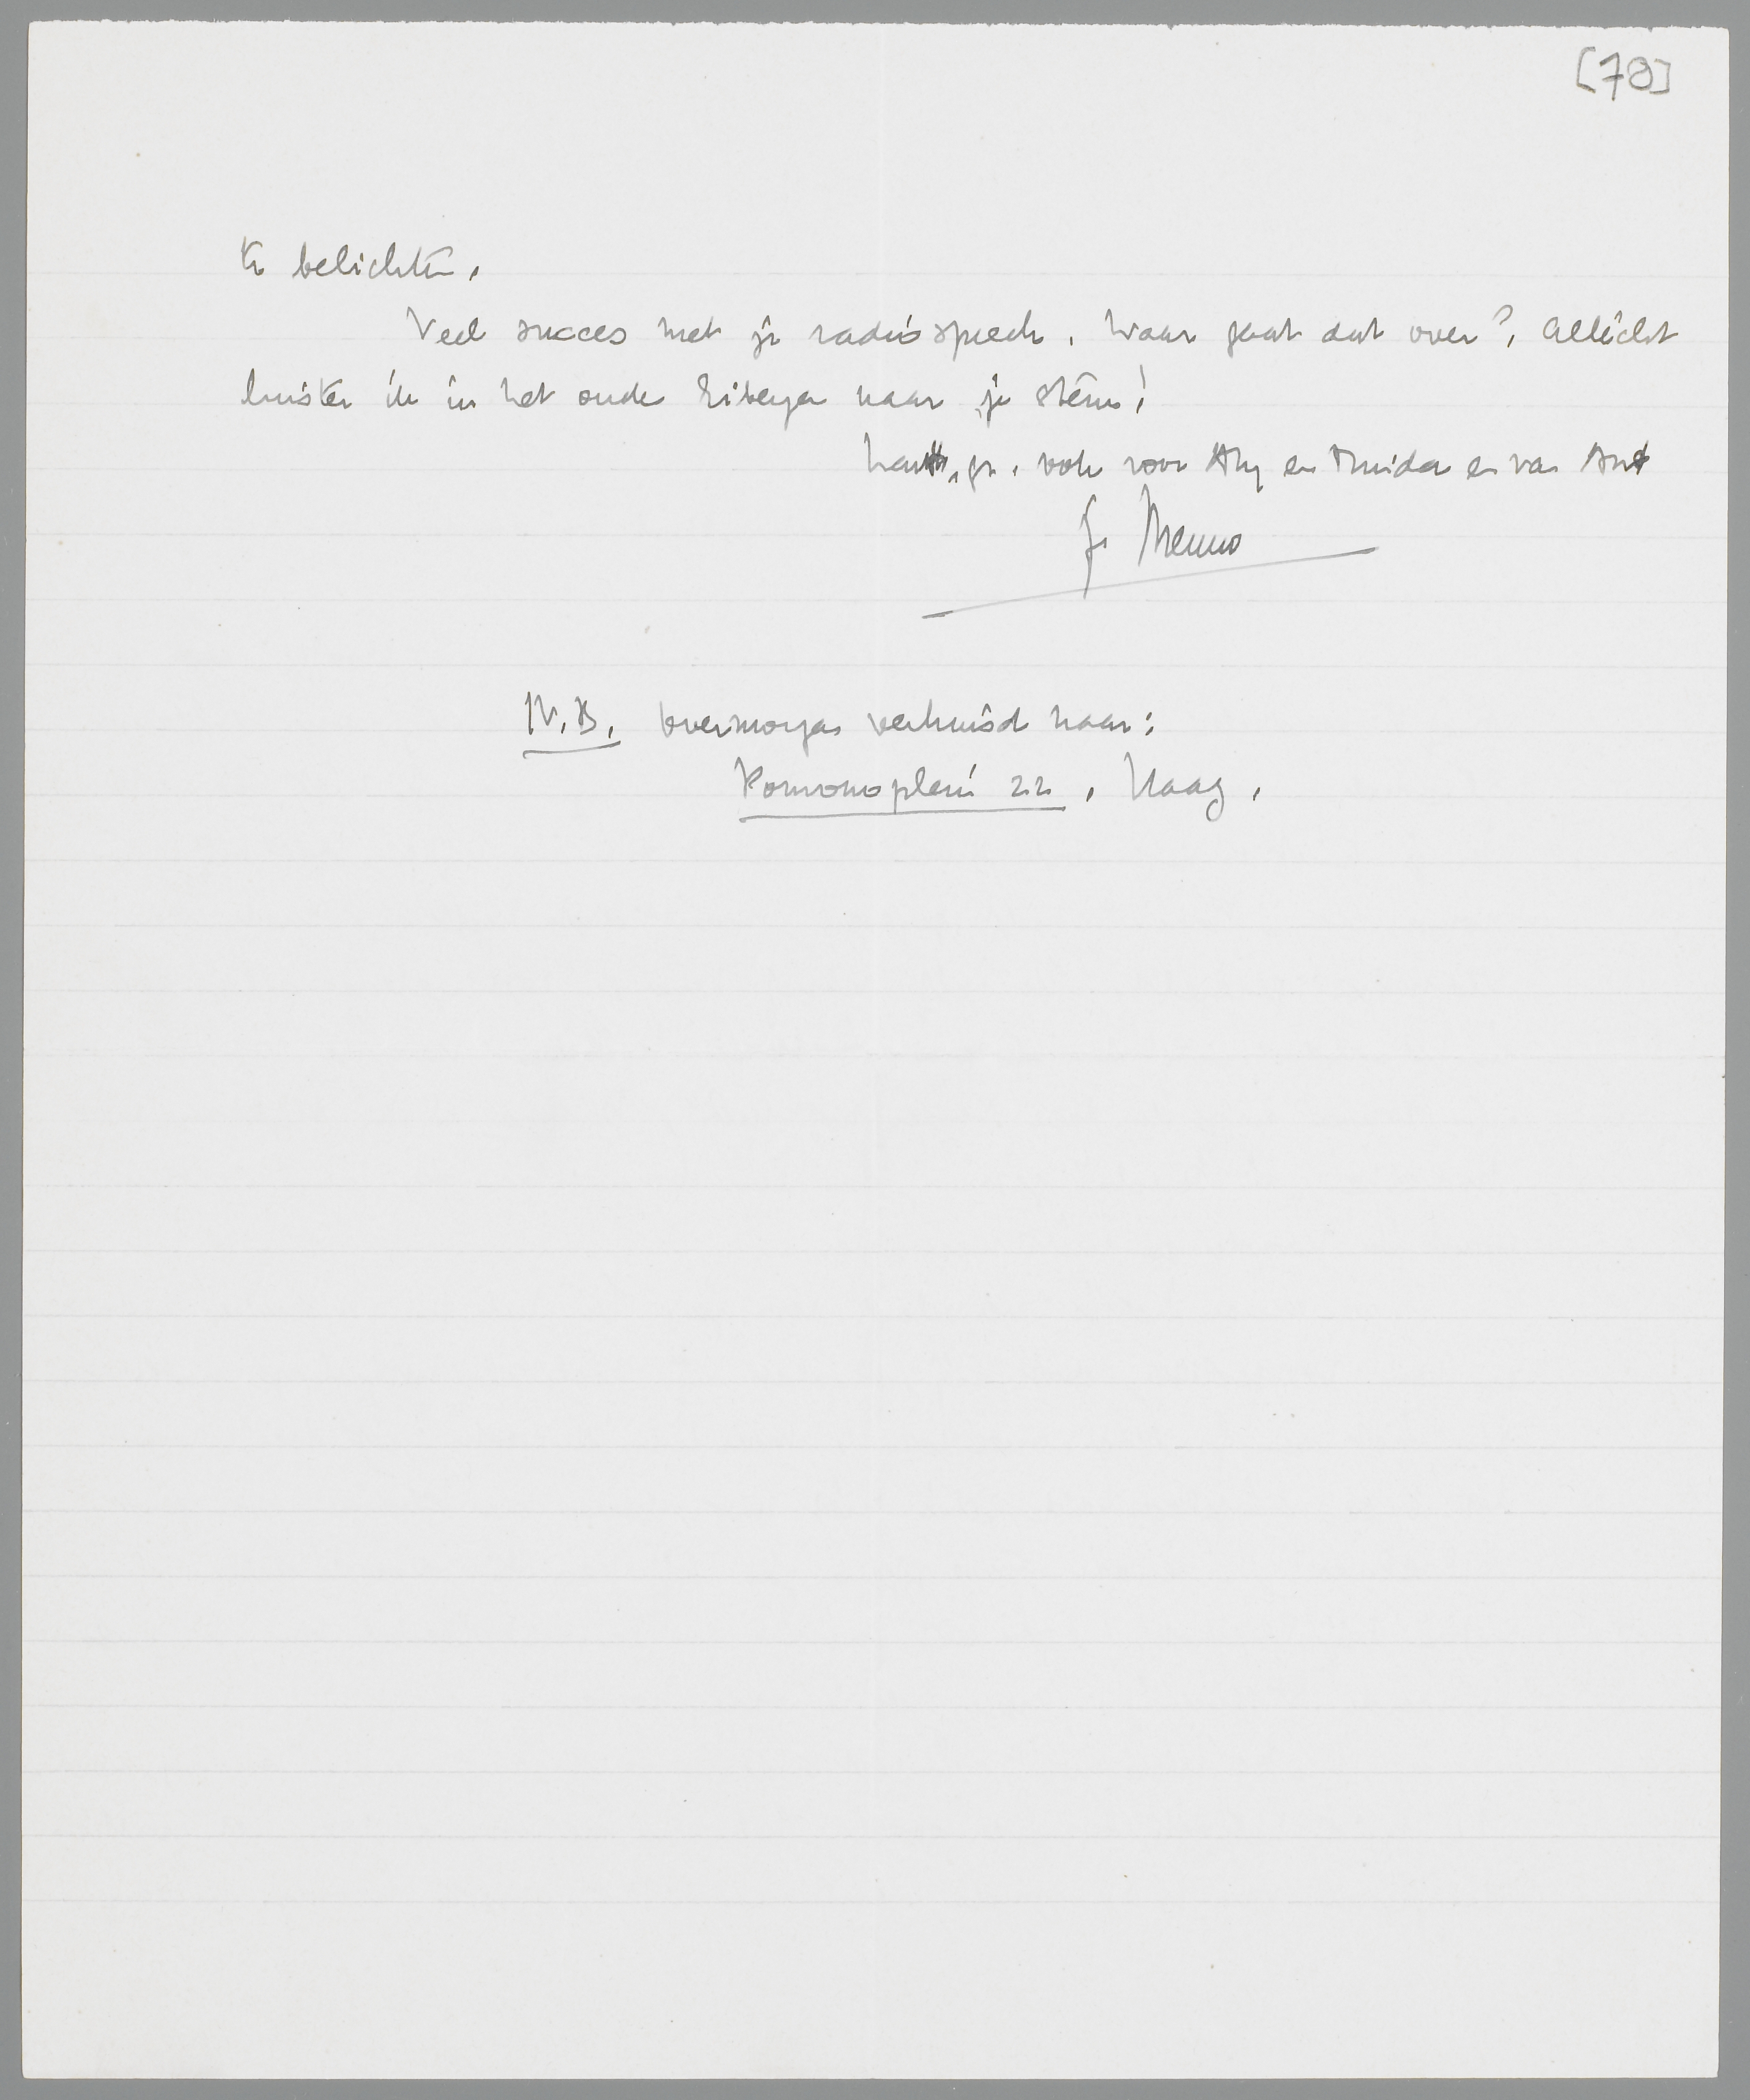 [78]
te belichten.
Veel succes met je radiospeech. Waar gaat dat over? Allicht
luister ik in het oude Eibergen naar je stem!
hart. gr. ook voor Atty en Truida en van Ant
Je Menno
N.B. Overmorgen verhuisd naar:
Pomonaplein 22, Haag.